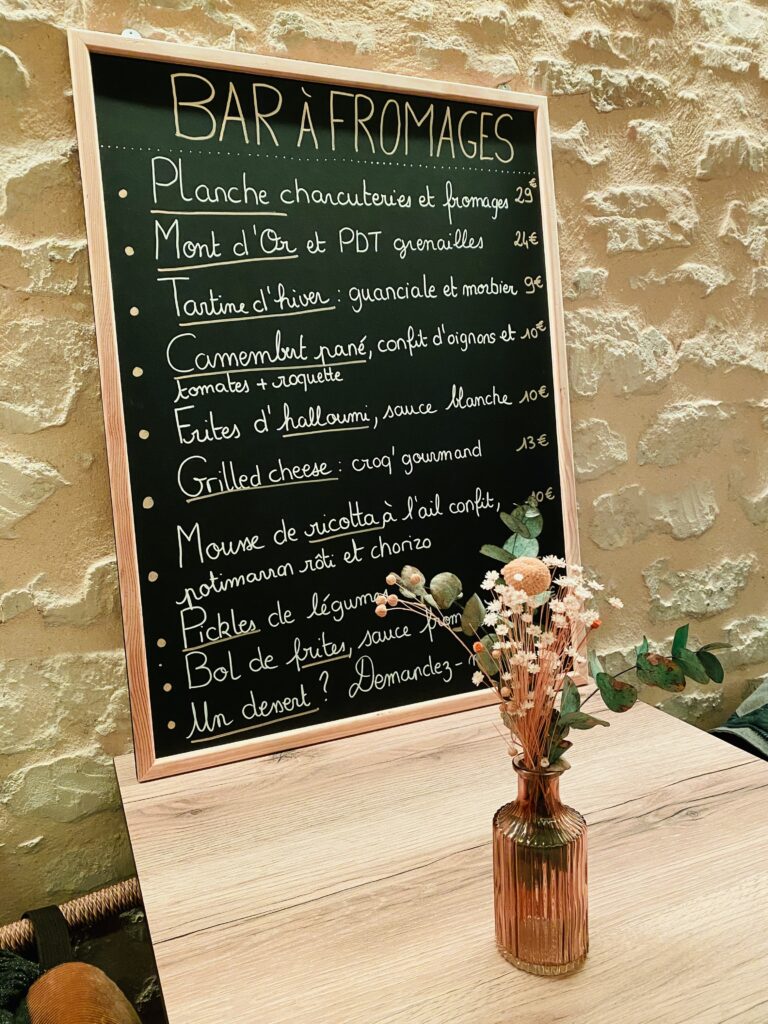 BAR À FROMAGES
Planche charcuteries et fromages 29€
Mont d'Or et PDT grenailles 24€
Tartine d'hiver : guanciale et morbier 9€
Camembert pané, confit d'oignons et 10€
tomates + roquette
Frites d'halloumi, sauce blanche 10€
Grilled cheese : croq' gourmand 13€
Mousse de ricotta à l'ail confit, 10€
potimarron rôti et chorizo
Pickles de légumes
Bol de frites, sauce
Un dessert ? Demandez-